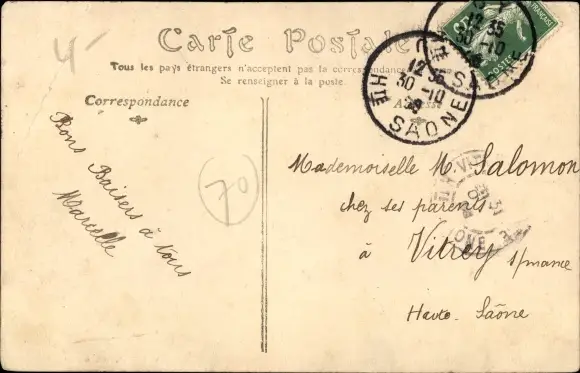 4
Carte Postale
Tous les pays étrangers n'acceptent pas la correspondance
Se renseigner à la poste.
Correspondance
Adresse
Bons Baisers à tous
Marcelle
70
Mademoiselle M. Salomon
chez ses parents
à Vitrey s/mance
Haute-Saône
12 35
30 -10
HTE SAONE
12 35
30 -10
SAONE
POSTES